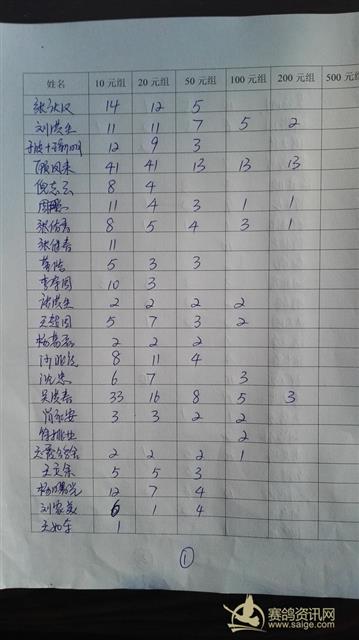 姓名 10元组 20元组 50元组 100元组 200元组 500元组
14 12 5
刘洪生 11 11 7 5 2
12 9 3
顾凤来 41 41 13 13 13
倪志云 8 4
周鹏 11 4 3 1 1
8 5 4 3 1
11
5 3 3
李存国 10 3
2 2 2 2
王超国 5 7 3 2
2 2 2
8 11 4
沈忠 6 7 3
吴俊春 33 16 8 5 3
肖永安 3 3 2 2
2
2 2 2 1
王文余 5 5 3
杨曙光 12 7 4
刘家美 6 1 4
王如年 1
1
赛鸽资讯网
www.saige.com